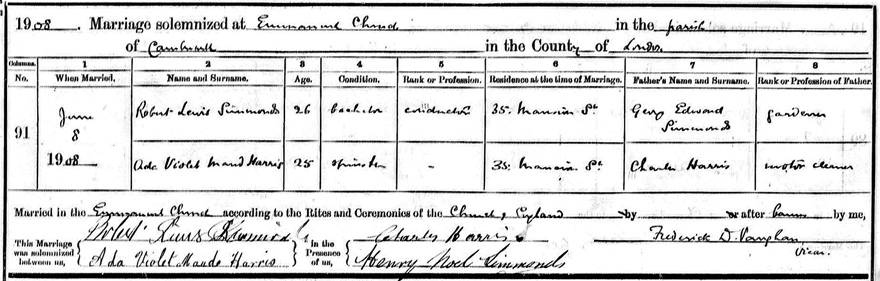 1908. Marriage solemnized at Emmanuel Church in the parish
of Camberwell in the County of London
Columns. 1 2 3 4 5 6 7 8
No. When Married. Name and Surname. Age. Condition. Rank or Profession. Residence at the time of Marriage. Father's Name and Surname. Rank or Profession of Father.
91 June 8 1908 Robert Lewis Simmonds 26 bachelor conductor 35. Mansion St Edward Simmonds gardener
Ada Violet Maud Harris 25 spinster - 35. Mansion St Charles Harris motor cleaner
Married in the Emmanuel Church according to the Rites and Ceremonies of the Church of England by or after banns by me,
This Marriage was solemnized between us, Robert Lewis Simmonds
Ada Violet Maude Harris
in the Presence of us, Charles Harris
Henry Noel Simmonds
Frederick D. Vaughan
Vicar.